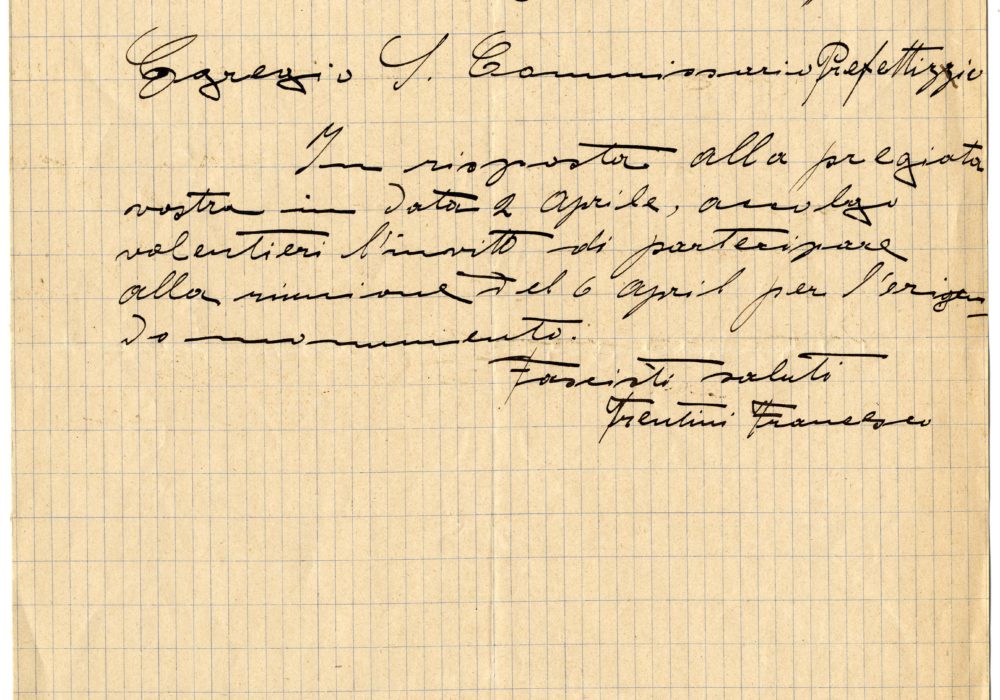 Egregio S. Commissario Prefettizzio
In risposta alla pregiata
vostra in data 2 Aprile, accolgo
volentieri l'invito di partecipare
alla riunione del 6 April per l'erigen-
do monumento.
Fascisti saluti
Trentini Francesco